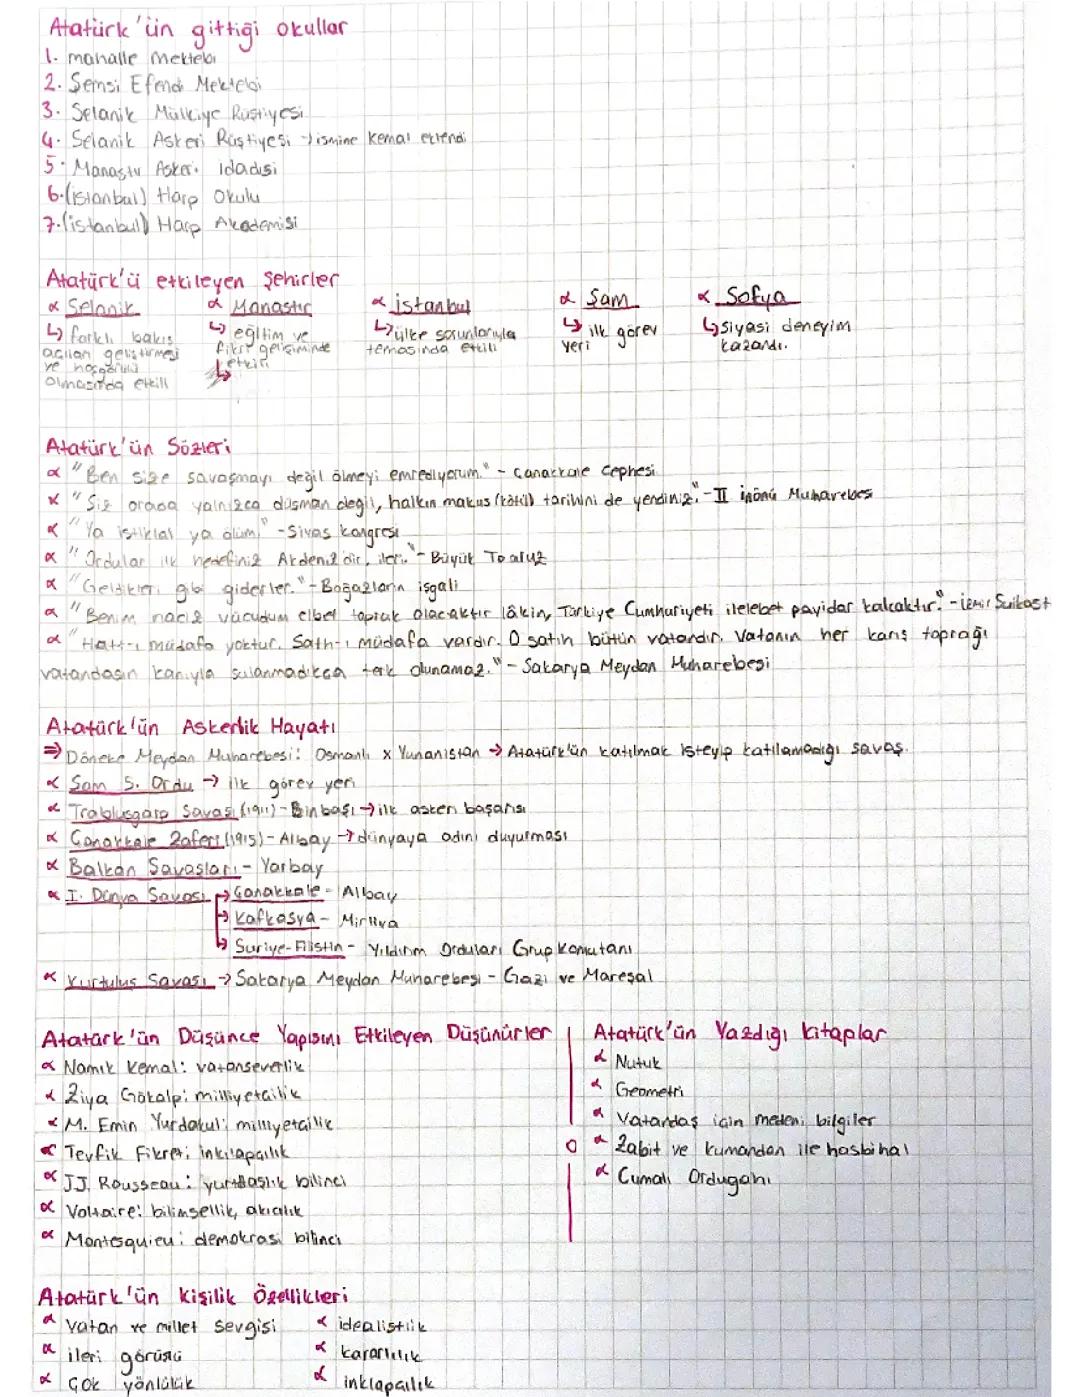 Atatürk'ün gittiği okullar
1. mahalle mektebi
2. Şemsi Efendi Mektebi
3. Selanik Mülkiye Rüştiyesi
4. Selanik Askeri Rüştiyesi → ismine Kemal eklendi
5. Manastır Askeri idadisi
6. (istanbul) Harp Okulu
7. (istanbul) Harp Akademisi
Atatürk'ü etkileyen şehirler
α Selanik
↳ farklı bakış
açıları geliştirmesi
ve hoşgörülü
olmasında etkili
α Manastır
↳ eğitim ve
fikir gelişiminde
etkili
α istanbul
↳ ülke sorunlarıyla
temasında etkili
α Şam
↳ ilk görev
yeri
α Sofya
↳ siyasi deneyim
kazandı.
Atatürk'ün Sözleri
α "Ben size savaşmayı değil ölmeyi emrediyorum." - Çanakkale Cephesi
α "Siz orada yalnızca düşman değil, halkın makus (kötü) tarihini de yendiniz." - II inönü Muharebesi
α "Ya istiklal ya ölüm" - Sivas kongresi
α "Ordular ilk hedefiniz Akdeniz'dir, ileri." - Büyük Taarruz
α "Geldikleri gibi giderler." - Boğazların işgali
α "Benim naciz vücudum elbet toprak olacaktır lâkin, Türkiye Cumhuriyeti ilelebet payidar kalcaktır." - izmir Suikast
α "Hatt-ı müdafa yoktur. Sath-ı müdafa vardır. O satıh bütün vatandır. Vatanın her karış toprağı
vatandaşın kanıyla sulanmadıkça terk olunamaz." - Sakarya Meydan Muharebesi
Atatürk'ün Askerlik Hayatı
⇒ Dömeke Meydan Muharebesi: Osmanlı x Yunanistan → Atatürk'ün katılmak isteyip katılamadığı savaş.
α Şam 5. Ordu → ilk görev yeri
α Trablusgarp Savaşı (1911) - Binbaşı → ilk askeri başarısı
α Çanakkale Zaferi (1915) - Albay → dünyaya adını duyurması
α Balkan Savaşları - Yarbay
α I. Dünya Savaşı → Çanakkale - Albay
→ Kafkasya - Mirliva
↳ Suriye-Filistin - Yıldırım Orduları Grup Komutanı
α Kurtuluş Savaşı → Sakarya Meydan Muharebesi - Gazi ve Mareşal
Atatürk'ün Düşünce Yapısını Etkileyen Düşünürler
α Namık Kemal: vatanseverlik
α Ziya Gökalp: milliyetçilik
α M. Emin Yurdakul: milliyetçilik
α Tevfik Fikret: inkılapçılık
α JJ. Rousseau: yurttaşlık bilinci
α Voltaire: bilimsellik, akılcılık
α Montesquieu: demokrasi bilinci
Atatürk'ün Yazdığı kitaplar
α Nutuk
α Geometri
α Vatandaş için medeni bilgiler
α Zabit ve kumandan ile hasbihal
α Cumalı Ordugahı
Atatürk'ün kişilik Özellikleri
α Vatan ve millet sevgisi
α ileri görüşlü
α Çok yönlülük
α idealistlik
α kararlılık
α inklapçılık